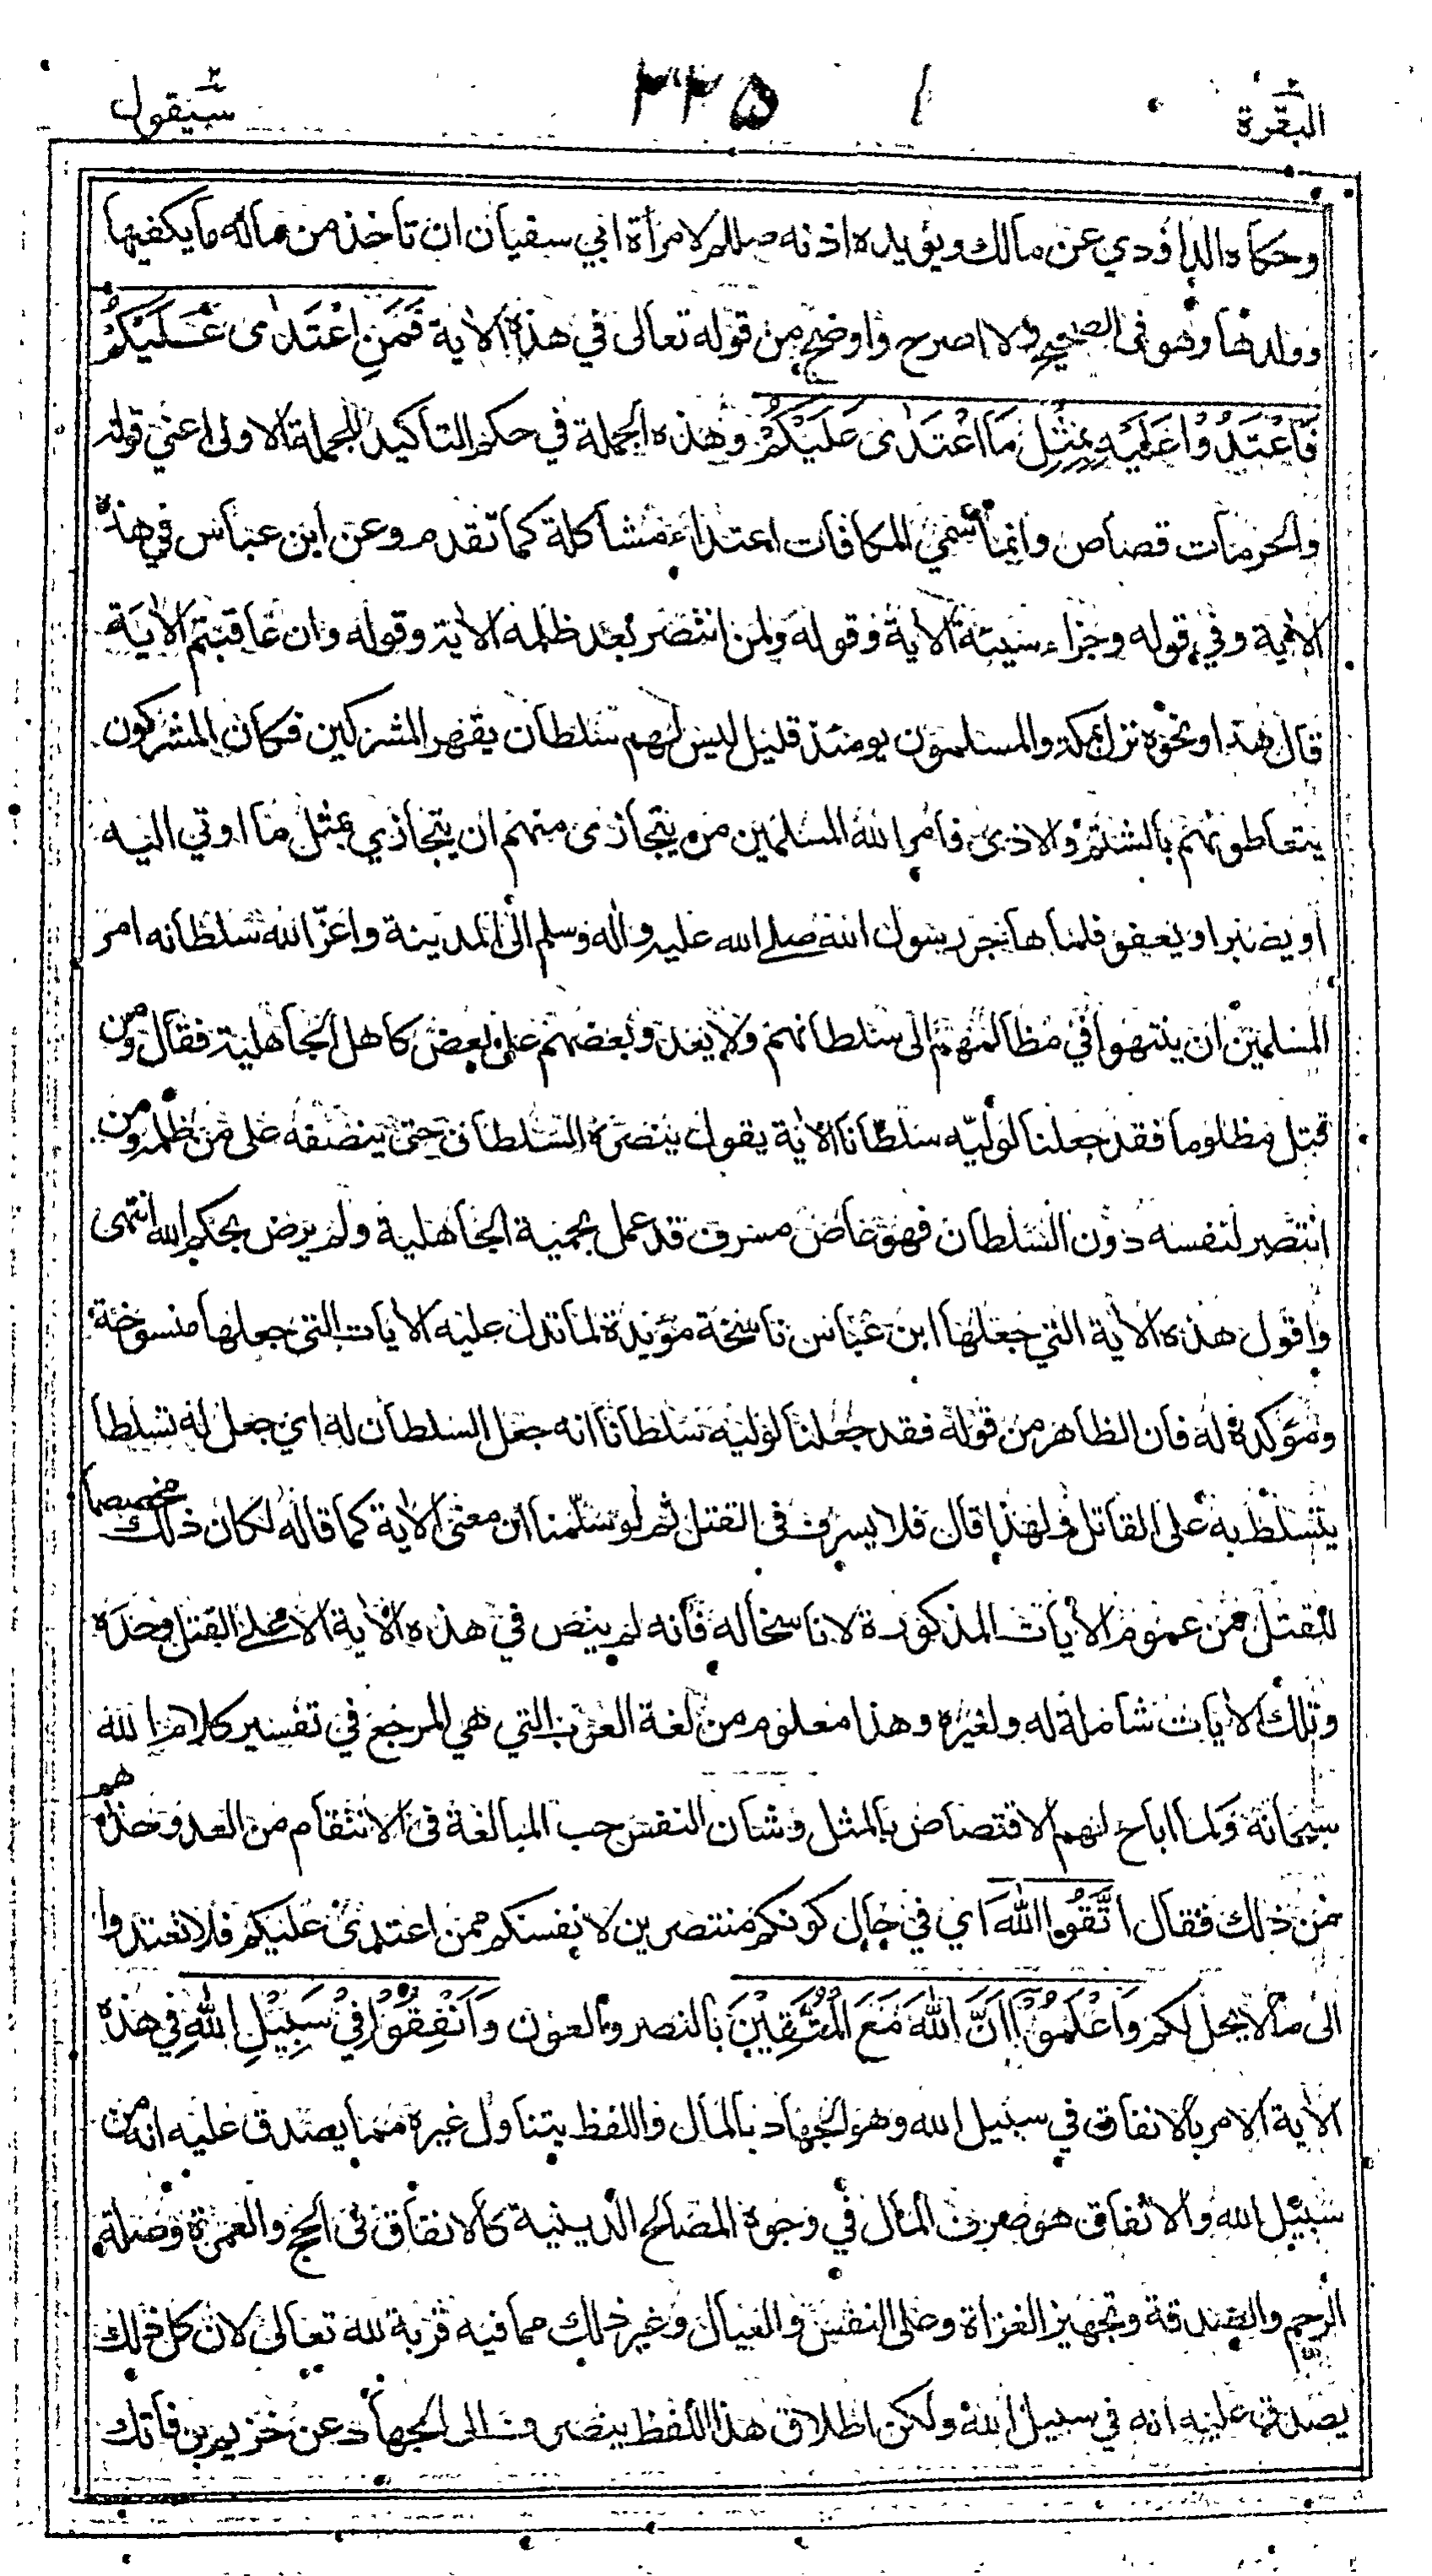 البقرة ٢ ٢٢٥ سيقول ٢
وحكاه الداؤدي عن مالك ويؤيده اذنه صللم لامرأة ابي سفيان ان تأخذ من ماله ما يكفيها
وولدها وهو فى الصحيح ولا اصرح واوضح من قوله تعالى في هذه الاٰية فَمَنِ اعْتَدٰى عَلَيْكُمْ
فَاعْتَدُوْا عَلَيْهِ بِمِثْلِ مَا اعْتَدٰى عَلَيْكُمْ وهذه الجملة في حكم التأكيد للجملة الاولى اعني قوله
والحرمات قصاص وانما سمي المكافات اعتداء مشاكلة كما تقدم وعن ابن عباس في هذه
الاٰية وفي قوله وجزاء سيئة الاٰية وقوله ولمن انتصر بعد ظلمه الاٰية وقوله وان عاقبتم الاٰية
قال هذا ونحوه نزل بمكة والمسلمون يومئذ قليل ليس لهم سلطان يقهر المشركين فكان المشركون
يتعاطونهم بالشتم والاذى فامر الله المسلمين من يتجازى منهم ان يتجازي بمثل ما اوتي اليه
او يصبر او يعفو فلما هاجر رسول الله صلے الله عليه واٰله وسلم الى المدينة واعزّ الله سلطانه امر
المسلمين ان ينتهوا في مظالمهم الى سلطانهم ولا يعدو بعضهم على بعض كاهل الجاهلية فقال ومن
قتل مظلوما فقد جعلنا لوليّه سلطانا الاٰية يقول ينصره السلطان حتى ينصفه على من ظلمه ومن
انتصر لنفسه دون السلطان فهو عاص مسرف قد عمل بحمية الجاهلية ولم يرض بحكم الله انتهى
واقول هذه الاٰية التي جعلها ابن عباس ناسخة مؤيدة لما تدل عليه الاٰيات التي جعلها منسوخة
ومؤكدة له فان الظاهر من قوله فقد جعلنا لوليه سلطانا انه جعل السلطان له اي جعل له تسلطا
يتسلط به على القاتل ولهذا قال فلا يسرف في القتل ثم لو سلّمنا ان معنى الاٰية كما قاله لكان ذلك مخصصا
للقتل من عموم الاٰيات المذكورة لا ناسخا له فانه لم ينص في هذه الاٰية الا على القتل وحده
وتلك الاٰيات شاملة له ولغيره وهذا معلوم من لغة العرب التي هي المرجع في تفسير كلام الله
سبحانه ولما اباح لهم الاقتصاص بالمثل وشان النفس حب المبالغة فى الانتقام من العدو حذرهم
من ذلك فقال اتَّقُوا اللهَ اي في حال كونكم منتصرين لانفسكم ممن اعتدى عليكم فلا تعتدوا
الى ما لا يحل لكم وَاعْلَمُوْا اَنَّ اللهَ مَعَ الْمُتَّقِيْنَ بالنصر والعون وَاَنْفِقُوْا فِيْ سَبِيْلِ اللهِ في هذه
الاٰية الامر بالانفاق في سبيل الله وهو الجهاد بالمال واللفظ يتناول غيره مما يصدق عليه انه من
سبيل الله والانفاق هو صرف المال في وجوه المصالح الدينية كالانفاق فى الحج والعمرة وصلة
الرحم والصدقة وتجهيز الغزاة وعلى النفس والعيال وغير ذلك مما فيه قربة لله تعالى لان كل ذلك
يصدق عليه انه في سبيل الله ولكن اطلاق هذا اللفظ ينصرف الى الجهاد عن خزيم بن فاتك